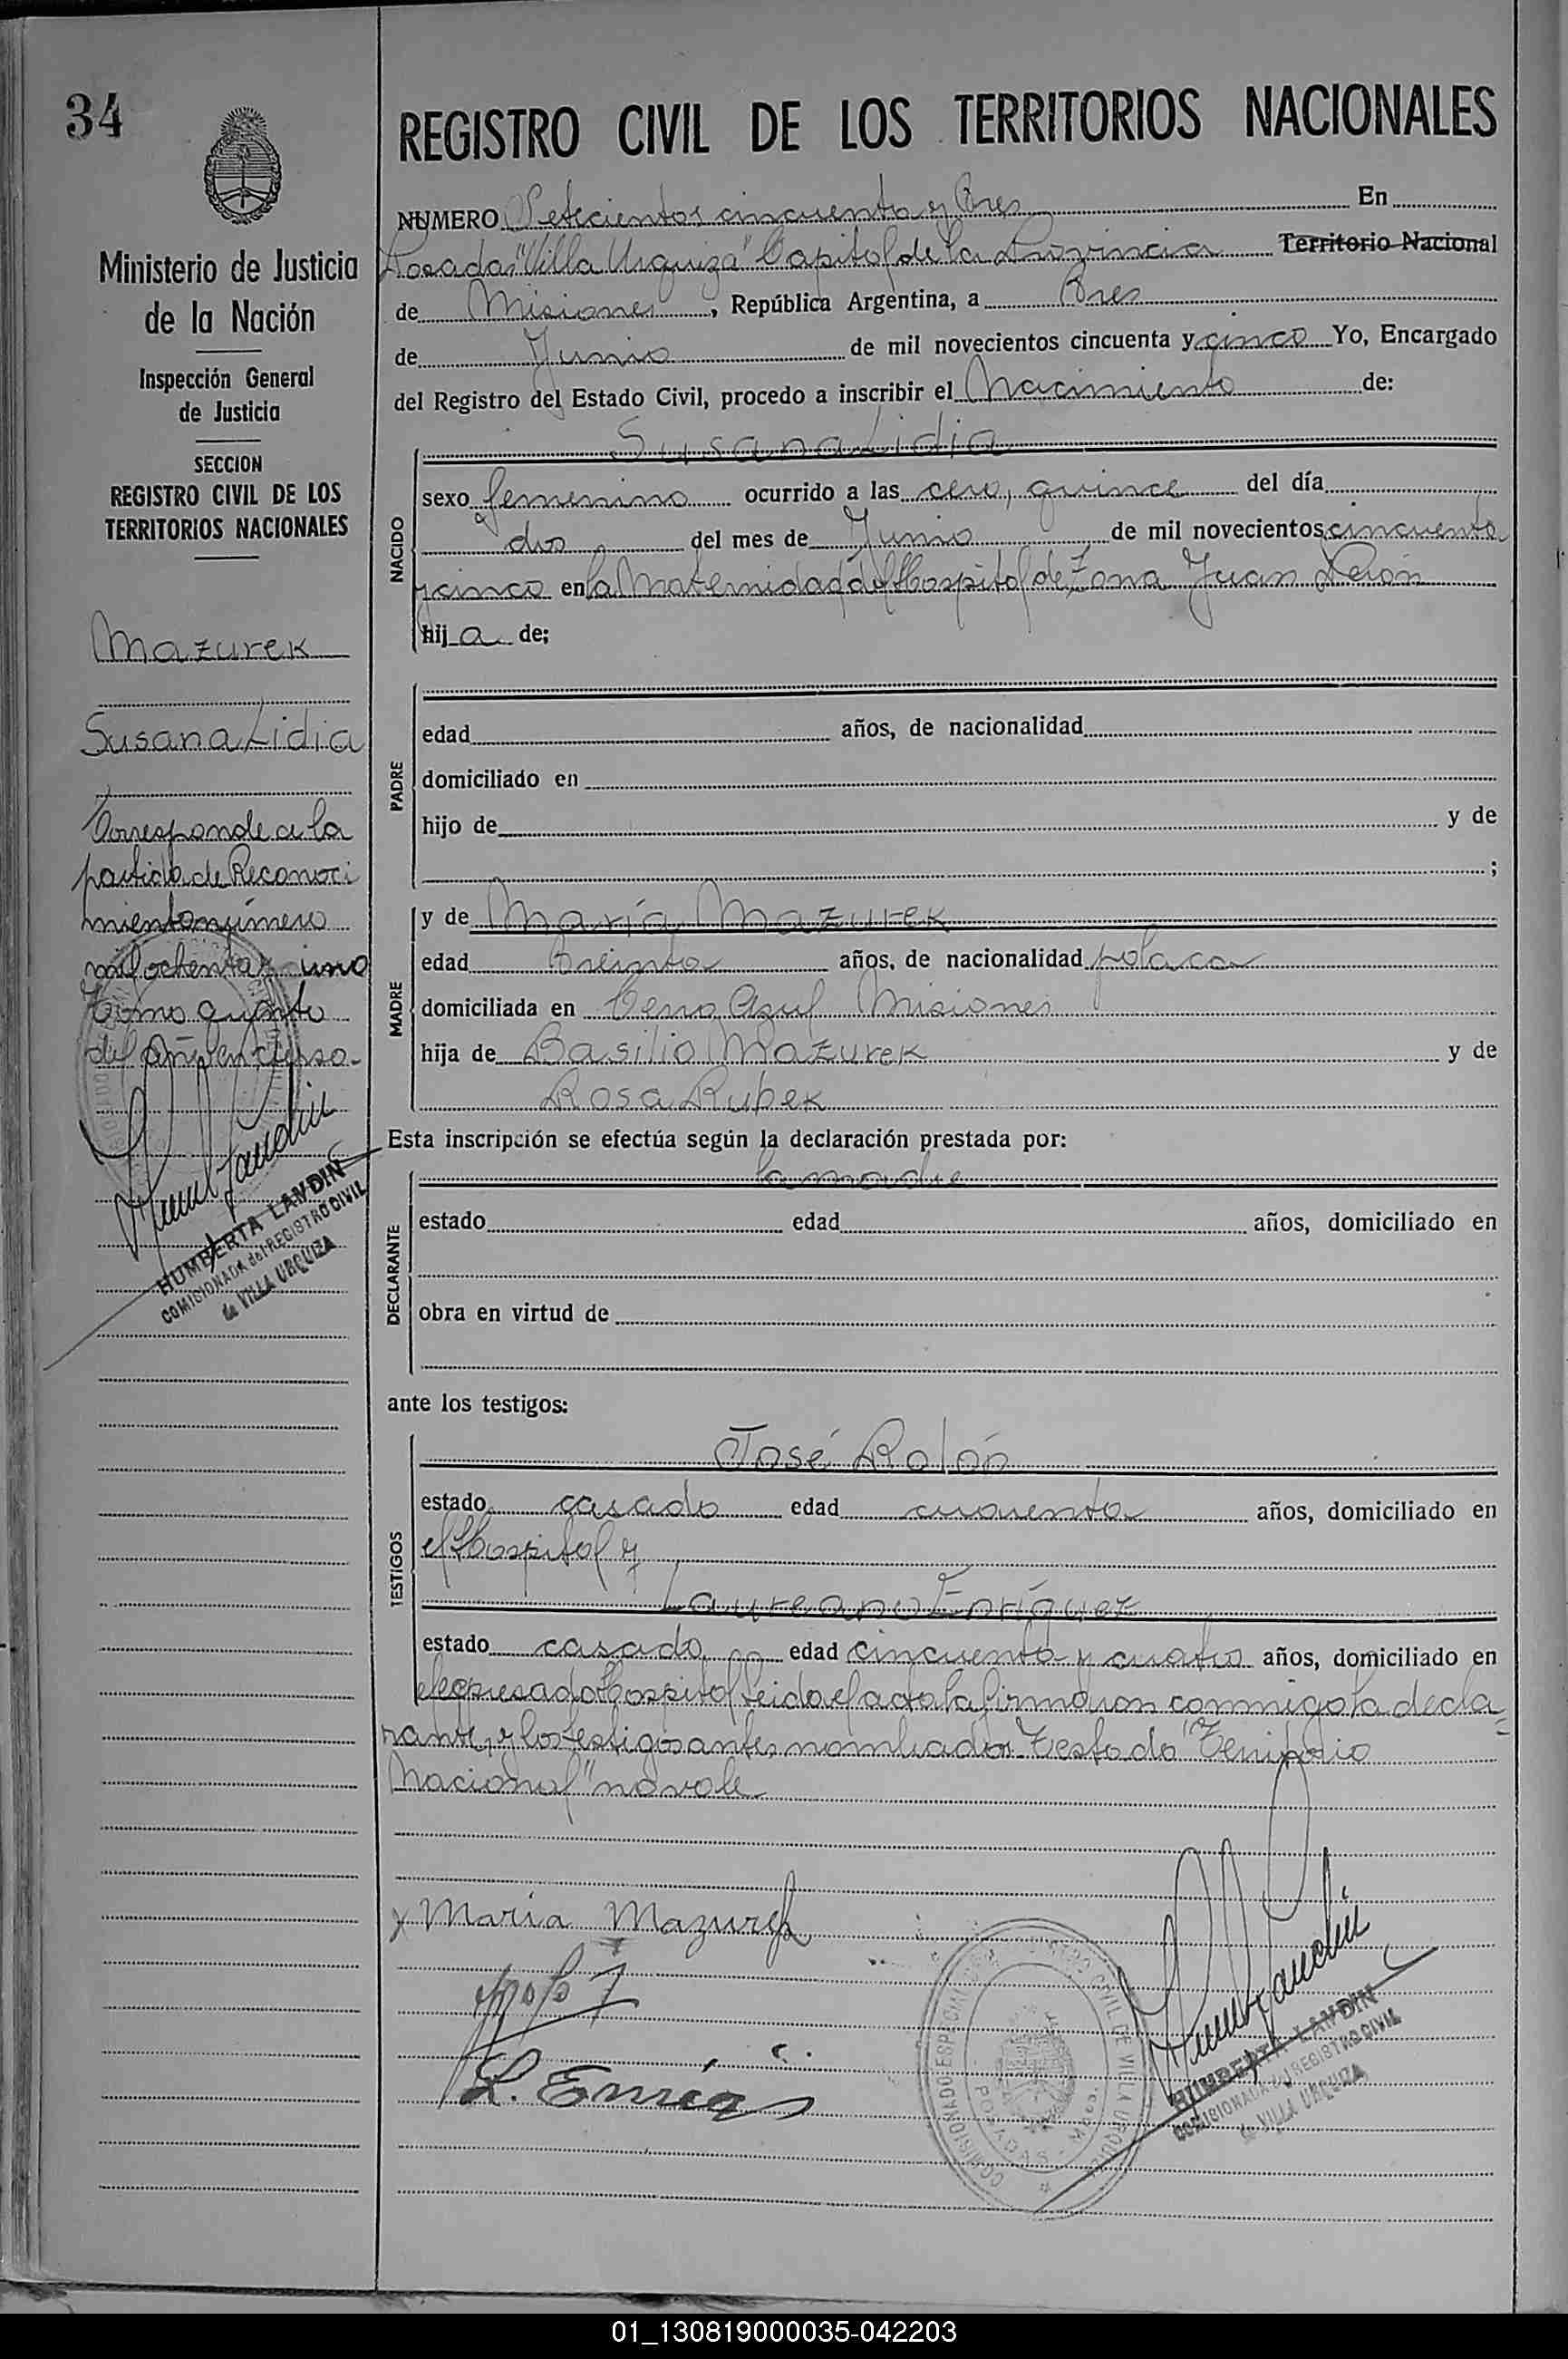 34
Ministerio de Justicia
de la Nación
Inspección General
de Justicia
SECCION
REGISTRO CIVIL DE LOS
TERRITORIOS NACIONALES
Mazurek
Susana Lidia
Corresponde a la
partida de Reconoci
miento número
mil ochenta y uno
Tomo quinto
del año en curso.-
HUMBERTA LANDIN
COMISIONADA del REGISTRO CIVIL
de VILLA URQUIZA
REGISTRO CIVIL DE LOS TERRITORIOS NACIONALES
NUMERO Setecientos cincuenta y tres En
Posadas "Villa Urquiza" Capital de la Provincia Territorio Nacional
de Misiones, República Argentina, a Tres
de Junio de mil novecientos cincuenta y cinco Yo, Encargado
del Registro del Estado Civil, procedo a inscribir el Nacimiento de:
NACIDO
Susana Lidia
sexo femenino ocurrido a las cero, quince del día
dos del mes de Junio de mil novecientos cincuenta
y cinco en la Maternidad del Hospital de Zona Juan Perón
hija de;
PADRE
edad años, de nacionalidad
domiciliado en
hijo de y de
;
MADRE
y de María Mazurek
edad treinta años, de nacionalidad polaca
domiciliada en Cerro Azul Misiones
hija de Basilio Mazurek y de
Rosa Rubek
Esta inscripción se efectúa según la declaración prestada por:
DECLARANTE
la madre
estado edad años, domiciliado en
obra en virtud de
ante los testigos:
TESTIGOS
José Rolón
estado casado edad cuarenta años, domiciliado en
el Hospital y
Laureano Enríquez
estado casado edad cincuenta y cuatro años, domiciliado en
el expresado Hospital Leida el acta la firmaron conmigo la decla=
rante, y los testigos antes nombrados-Testado "Territorio
Nacional" no vale
x Maria Mazurek
L. Enríq
COMISIONADO ESPECIAL DEL REGISTRO CIVIL DE VILLA URQUIZA
POSADAS - Mnes.
HUMBERTA LANDIN
COMISIONADA del REGISTRO CIVIL
de VILLA URQUIZA
01_130819000035-042203